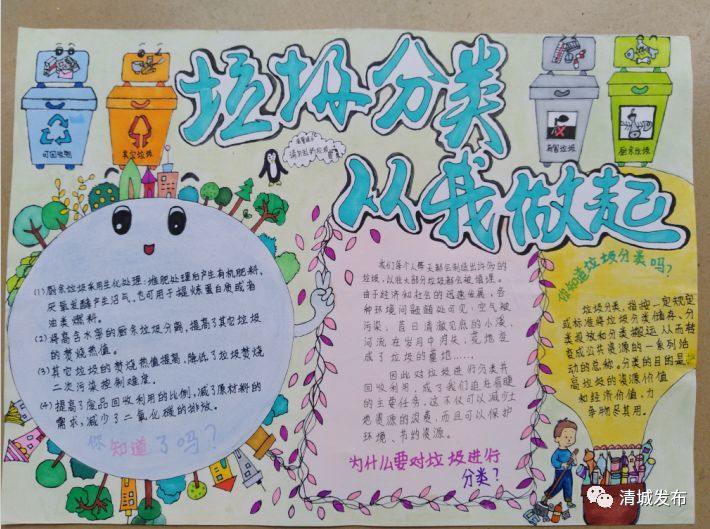 垃圾分类
从我做起
可回收物
其它垃圾
有害垃圾
厨余垃圾
(1)厨余垃圾采用生化处理:堆肥处理后产生有机肥料,
厌氧发酵产生沼气,也可用于提炼蛋白质或者
油类燃料。
(2)将高含水率的厨余垃圾分离,提高了其它垃圾
的焚烧热值。
(3)其它垃圾的焚烧热值提高,降低了垃圾焚烧
二次污染控制难度。
(4)提高了废品回收利用的比例,减了原材料的
需求,减少了二氧化碳的排放。
你知道了吗?
我们每个人每天都会制造出许多的
垃圾,以往大部分垃圾都会被填埋。
由于经济和社会的迅速发展,各
种环境问题随处可见:空气被
污染,昔日清澈见底的小溪、
河流在岁月中消失,荒地变
成了垃圾的墓地……
因此对垃圾进行分类并
回收利用,成了我们迫在眉睫
的主要任务。这不仅可以减少土
地资源的浪费,而且可以保护
环境、节约资源。
为什么要对垃圾进行
分类?
你知道垃圾分类吗?
垃圾分类,指按一定规定
或标准将垃圾分类储存、分
类投放和分类搬运,从而转
变成公共资源的一系列活
动的总称。分类的目的是提
高垃圾的资源价值
和经济价值,力
争物尽其用。
清城发布